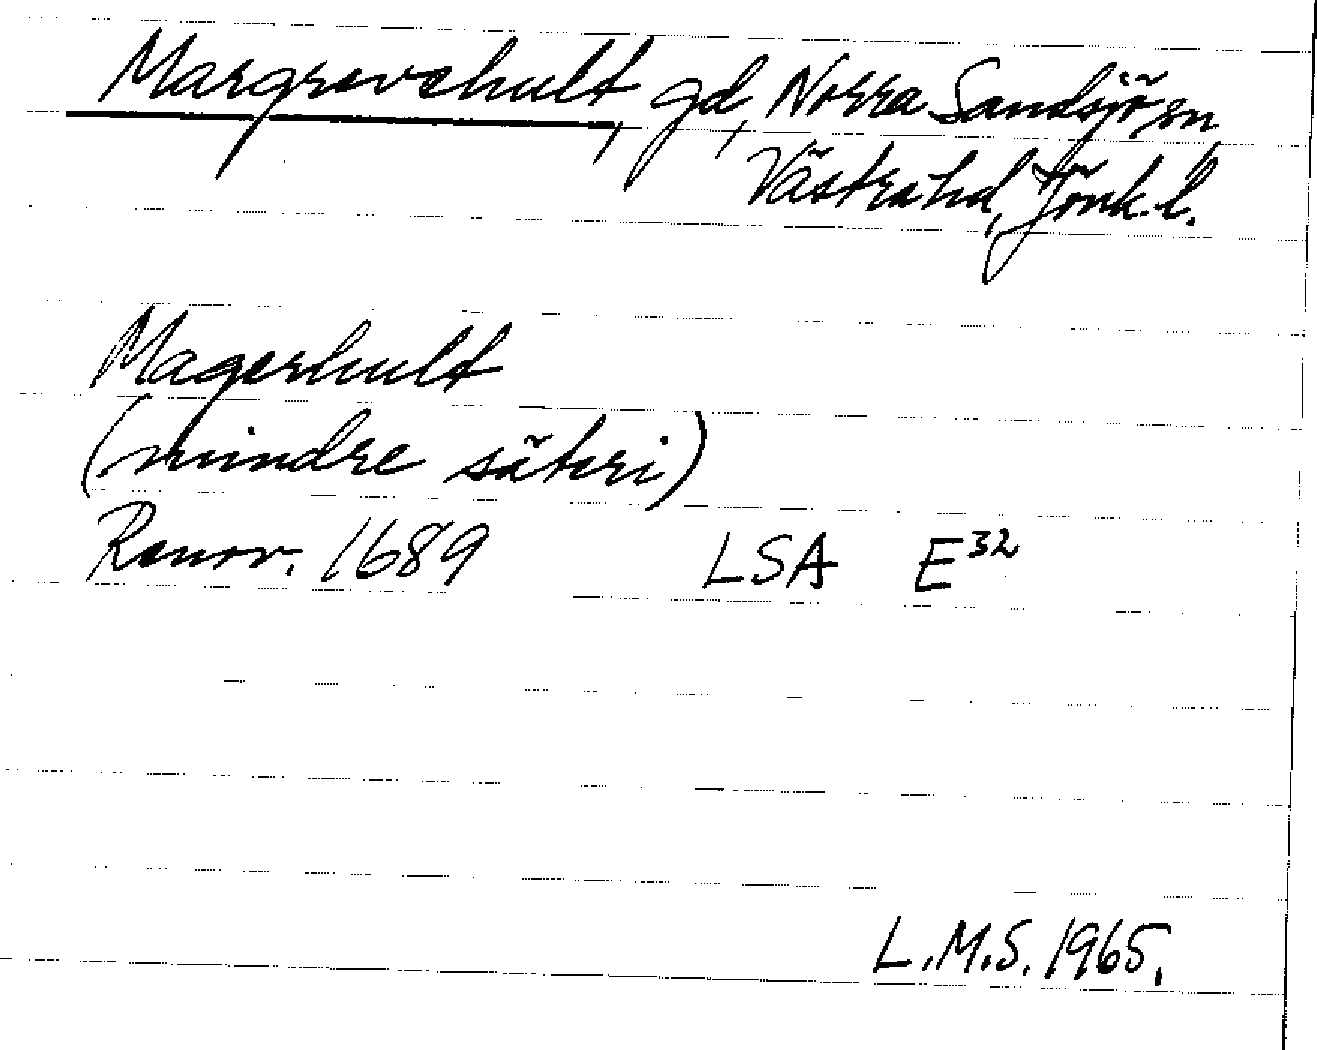 Margrevehult, gd, Norra Sandsjö sn
Västra hd, Jönk. l.
Magerhult
(mindre säteri)
Renov. 1689 LSA E³²
L.M.S. 1965.